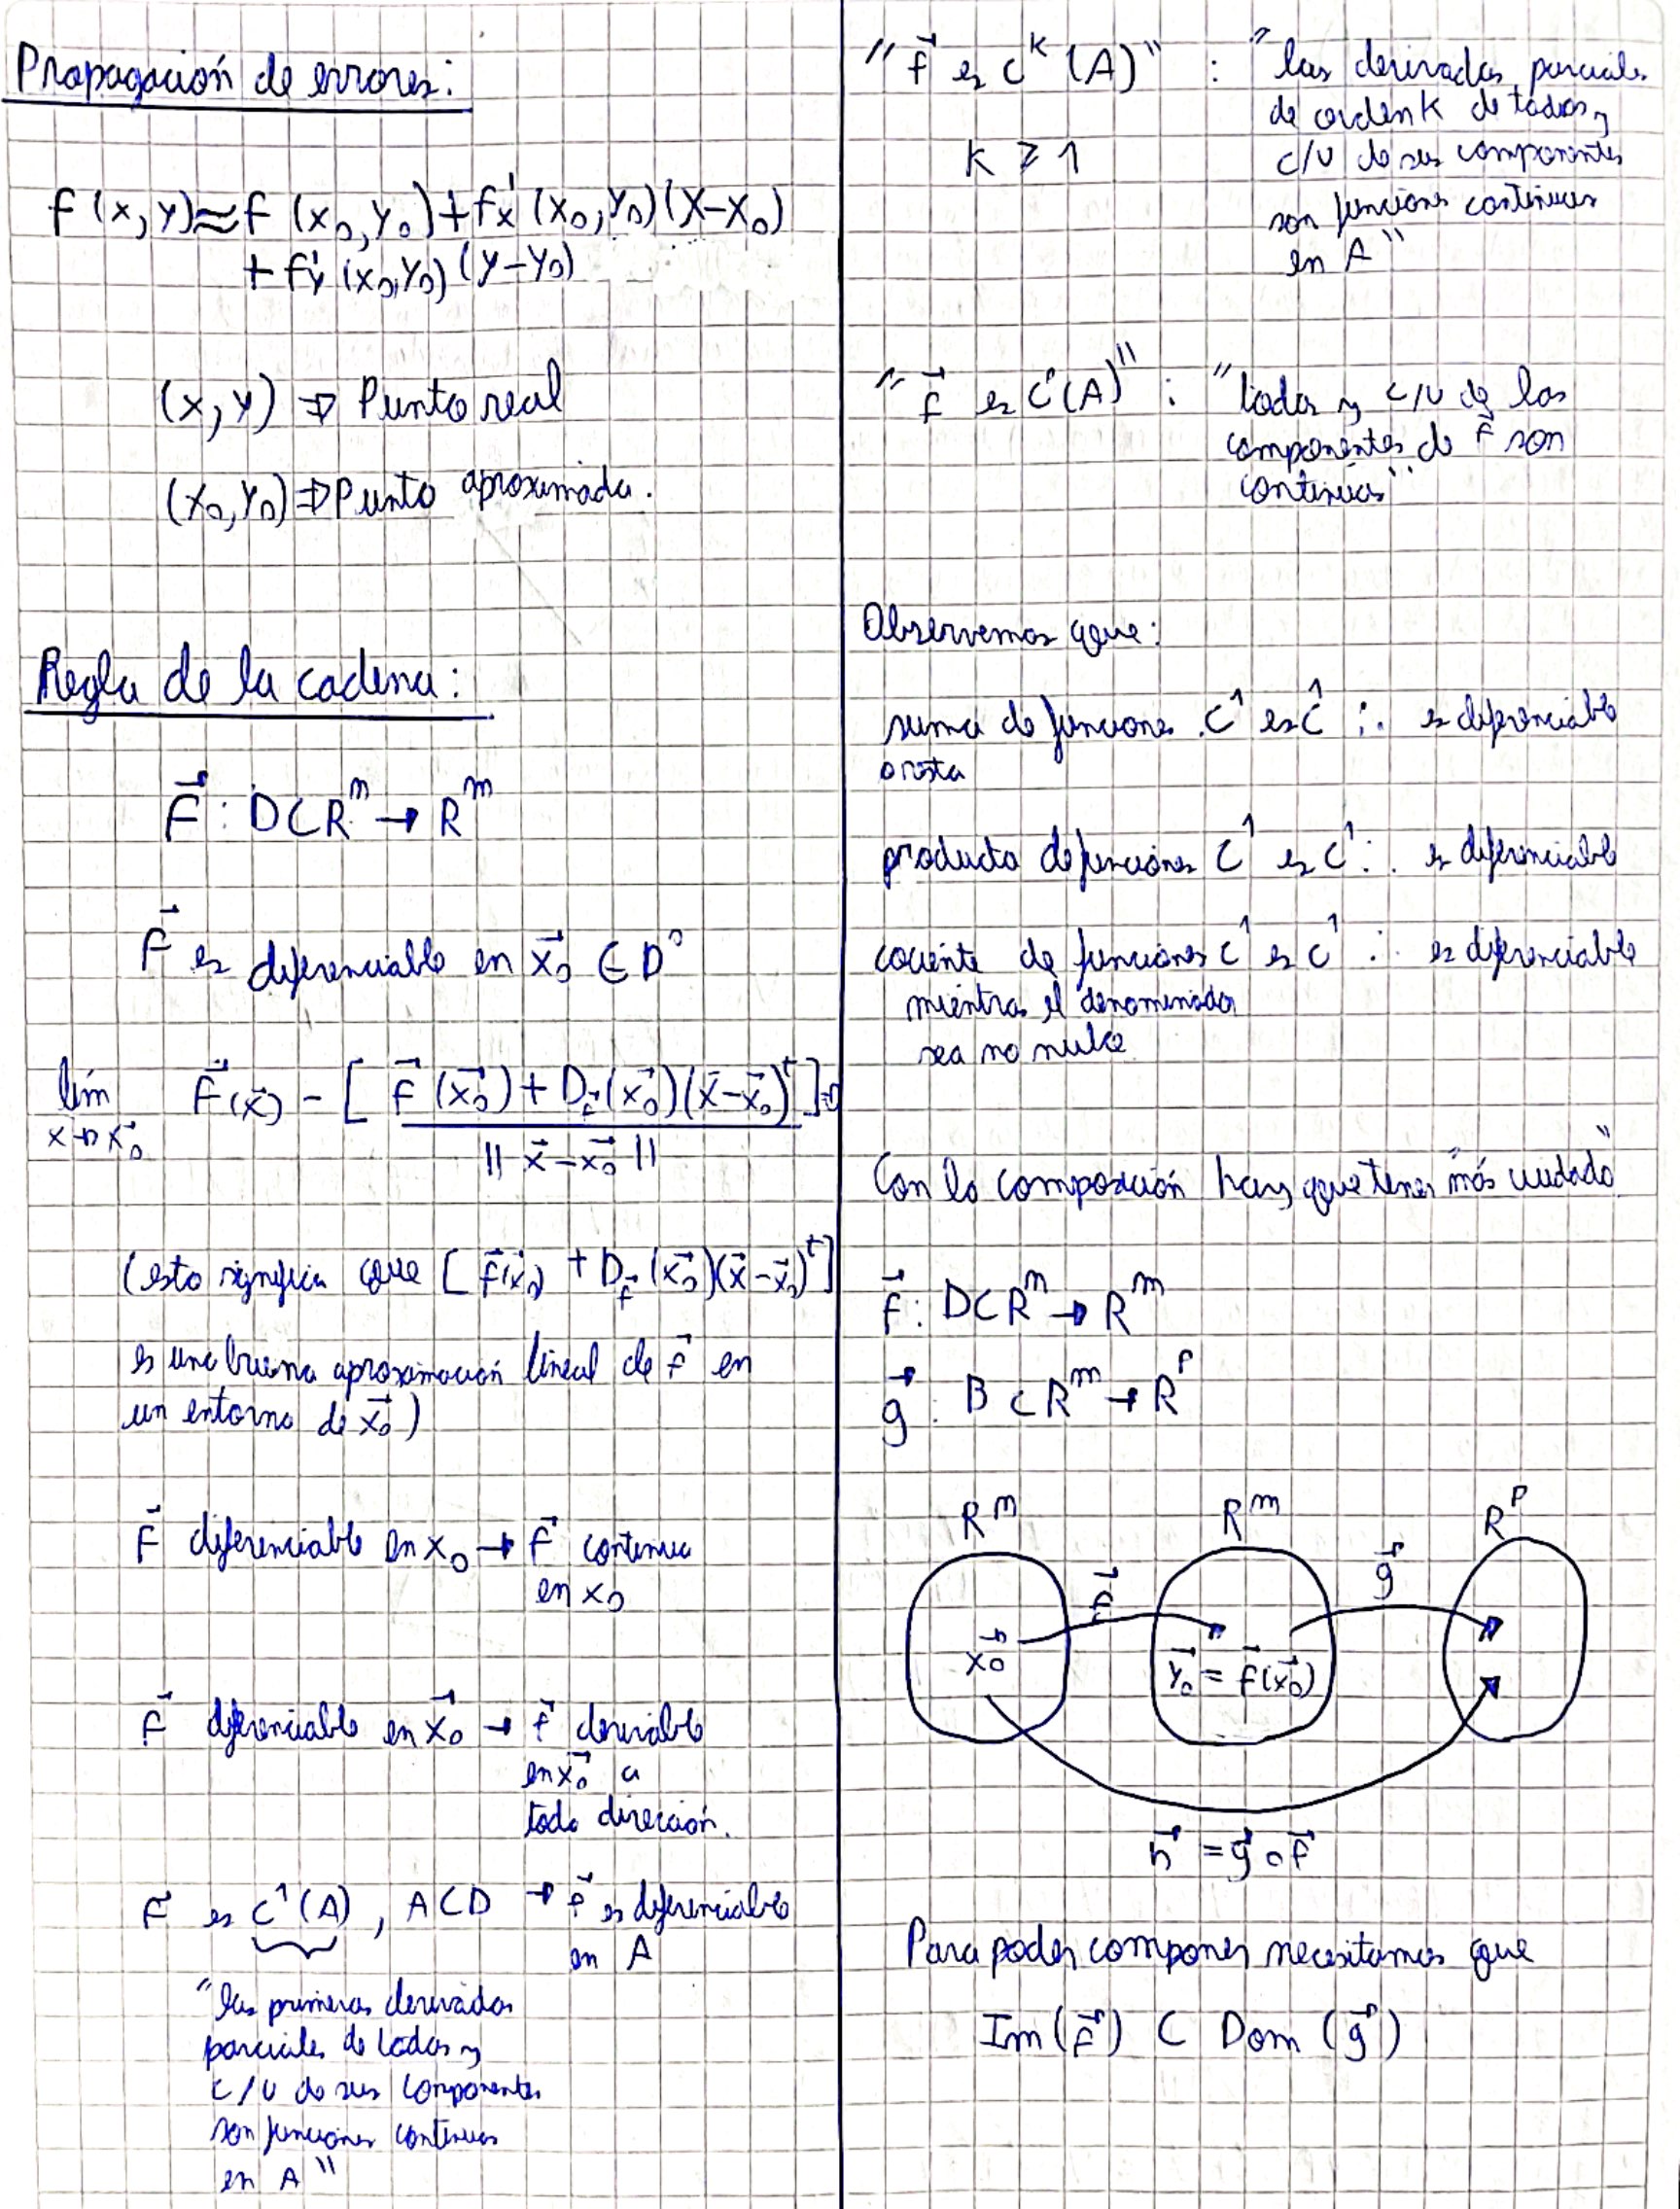 Propagación de errores:
f(x,y)≈f(x₀,y₀)+f'x(x₀,y₀)(x-x₀)
+f'y(x₀,y₀)(y-y₀)
(x,y) ⇒ Punto real
(x₀,y₀) ⇒ Punto aproximado.
Regla de la cadena:
F⃗: D⊂Rⁿ → Rᵐ
F⃗ es diferenciable en x⃗₀ ∈ D°
lím F⃗(x⃗) - [F⃗(x⃗₀) + D_f⃗(x⃗₀)(x⃗-x⃗₀)ᵗ]=0
x→x⃗₀
||x⃗-x⃗₀||
(esto significa que [F⃗(x⃗₀) + D_f⃗(x⃗₀)(x⃗-x⃗₀)ᵗ]
es una buena aproximación lineal de f⃗ en
un entorno de x⃗₀)
F⃗ diferenciable en x₀ → F⃗ continua
en x₀
F⃗ diferenciable en x⃗₀ → f⃗ derivable
en x⃗₀ a
toda dirección.
F⃗ es C¹(A), A⊂D → f⃗ es diferenciable
en A
"las primeras derivadas
parciales de todas y
c/u de sus componentes
son funciones continuas
en A"
"f⃗ es Cᵏ(A)" : "las derivadas parciales
de orden k de todas y
k ≥ 1 c/u de sus componentes
son funciones continuas
en A"
"f⃗ es C(A)" : "todas y c/u de las
componentes de F⃗ son
continuas"
Observemos que:
suma de funciones C¹ es C¹ ∴ es diferenciable
o resta
producto de funciones C¹ es C¹ ∴ es diferenciable
cociente de funciones C¹ es C¹ ∴ es diferenciable
mientras el denominador
sea no nulo
Con la composición hay que tener "más cuidado"
f⃗: D⊂Rⁿ → Rᵐ
g⃗: B⊂Rᵐ → Rᵖ
Rⁿ Rᵐ Rᵖ
f⃗ g⃗
x⃗₀ y⃗₀ = f⃗(x⃗₀)
h⃗ = g⃗∘f⃗
Para poder componer necesitamos que
Im(f⃗) ⊂ Dom(g⃗)